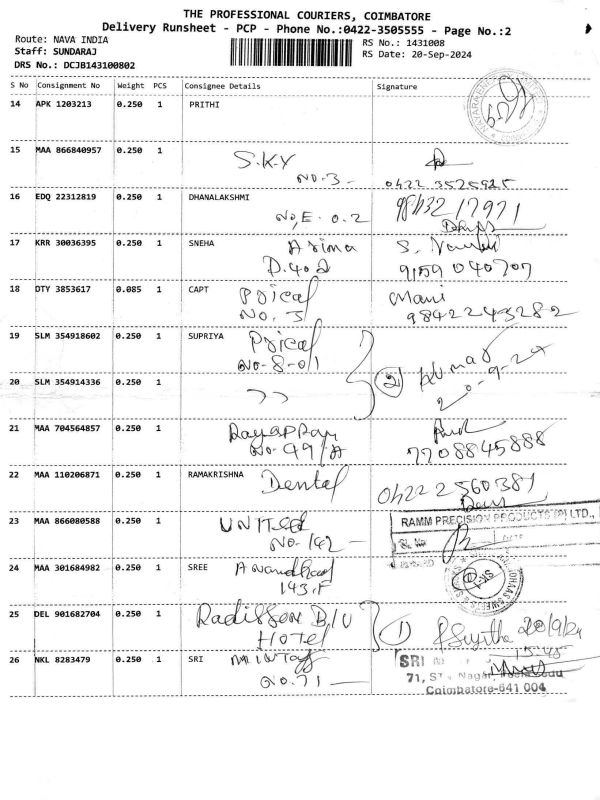 THE PROFESSIONAL COURIERS, COIMBATORE
Delivery Runsheet - PCP - Phone No.:0422-3505555 - Page No.:2
Route: NAVA INDIA
Staff: SUNDARAJ
DRS No.: DCJB143100802
RS No.: 1431008
RS Date: 20-Sep-2024
S No Consignment No Weight PCS Consignee Details Signature
14 APK 1203213 0.250 1 PRITHI
15 MAA 866840957 0.250 1 S.K.Y
NO. 3 - 0422 3525925
16 EDQ 22312819 0.250 1 DHANALAKSHMI
NO, E. 0.2
17 KRR 30036395 0.250 1 SNEHA
D.402 9159 040707
18 DTY 3853617 0.085 1 CAPT Pricol Mani
NO. 3 98422 43282
19 SLM 354918602 0.250 1 SUPRIYA Pricol
NO-8-0/1 2 Kumar
20-9-24
20 SLM 354914336 0.250 1 ,,
21 MAA 704564857 0.250 1 Rayappan
NO-99/A 7708845888
22 MAA 110206871 0.250 1 RAMAKRISHNA Dental 0422 2560381
23 MAA 866080588 0.250 1 UNITED
NO- 142 -
RAMM PRECISION PRODUCTS (P) LTD.,
24 MAA 301684982 0.250 1 SREE
143.F
25 DEL 901682704 0.250 1 Radisson BLU
HOTEL 1) 20/9/24
15:45
26 NKL 8283479 0.250 1 SRI
NO. 71
SRI
71,
Coimbatore-641 004